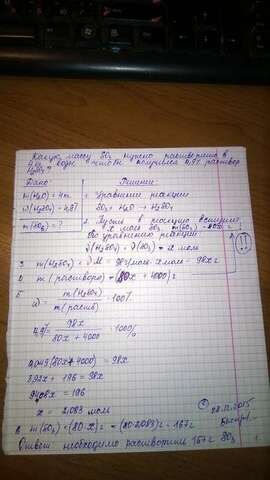 Какую массу SO₃ нужно растворить в
4 кг воды чтобы получился 4,9% раствор
H₂SO₄?
Дано:
Решение:
m(H₂O) = 4кг
1. Уравнение реакции
ω(H₂SO₄) = 4,9%
SO₃ + H₂O → H₂SO₄
m(SO₃) = ?
2. Пусть в реакцию вступило
x моль SO₃ m(SO₃) = 80x г
По уравнению реакции
ν(H₂SO₄) = ν(SO₃) = x моль
3. m(H₂SO₄) = ν·M = 98г/моль · x моль = 98x г
4. m(раствора) = (80x + 4000) г
5. ω = m(H₂SO₄) / m(раств) · 100%
4,9% = 98x / 80x + 4000 · 100%
0,049(80x + 4000) = 98x
3,92x + 196 = 98x
94,08x = 196
x = 2,083 моль
6. m(SO₃) = (80·x) г = (80·2,083) г = 167 г
28.12.2015
Ответ: необходимо растворить 167 г SO₃